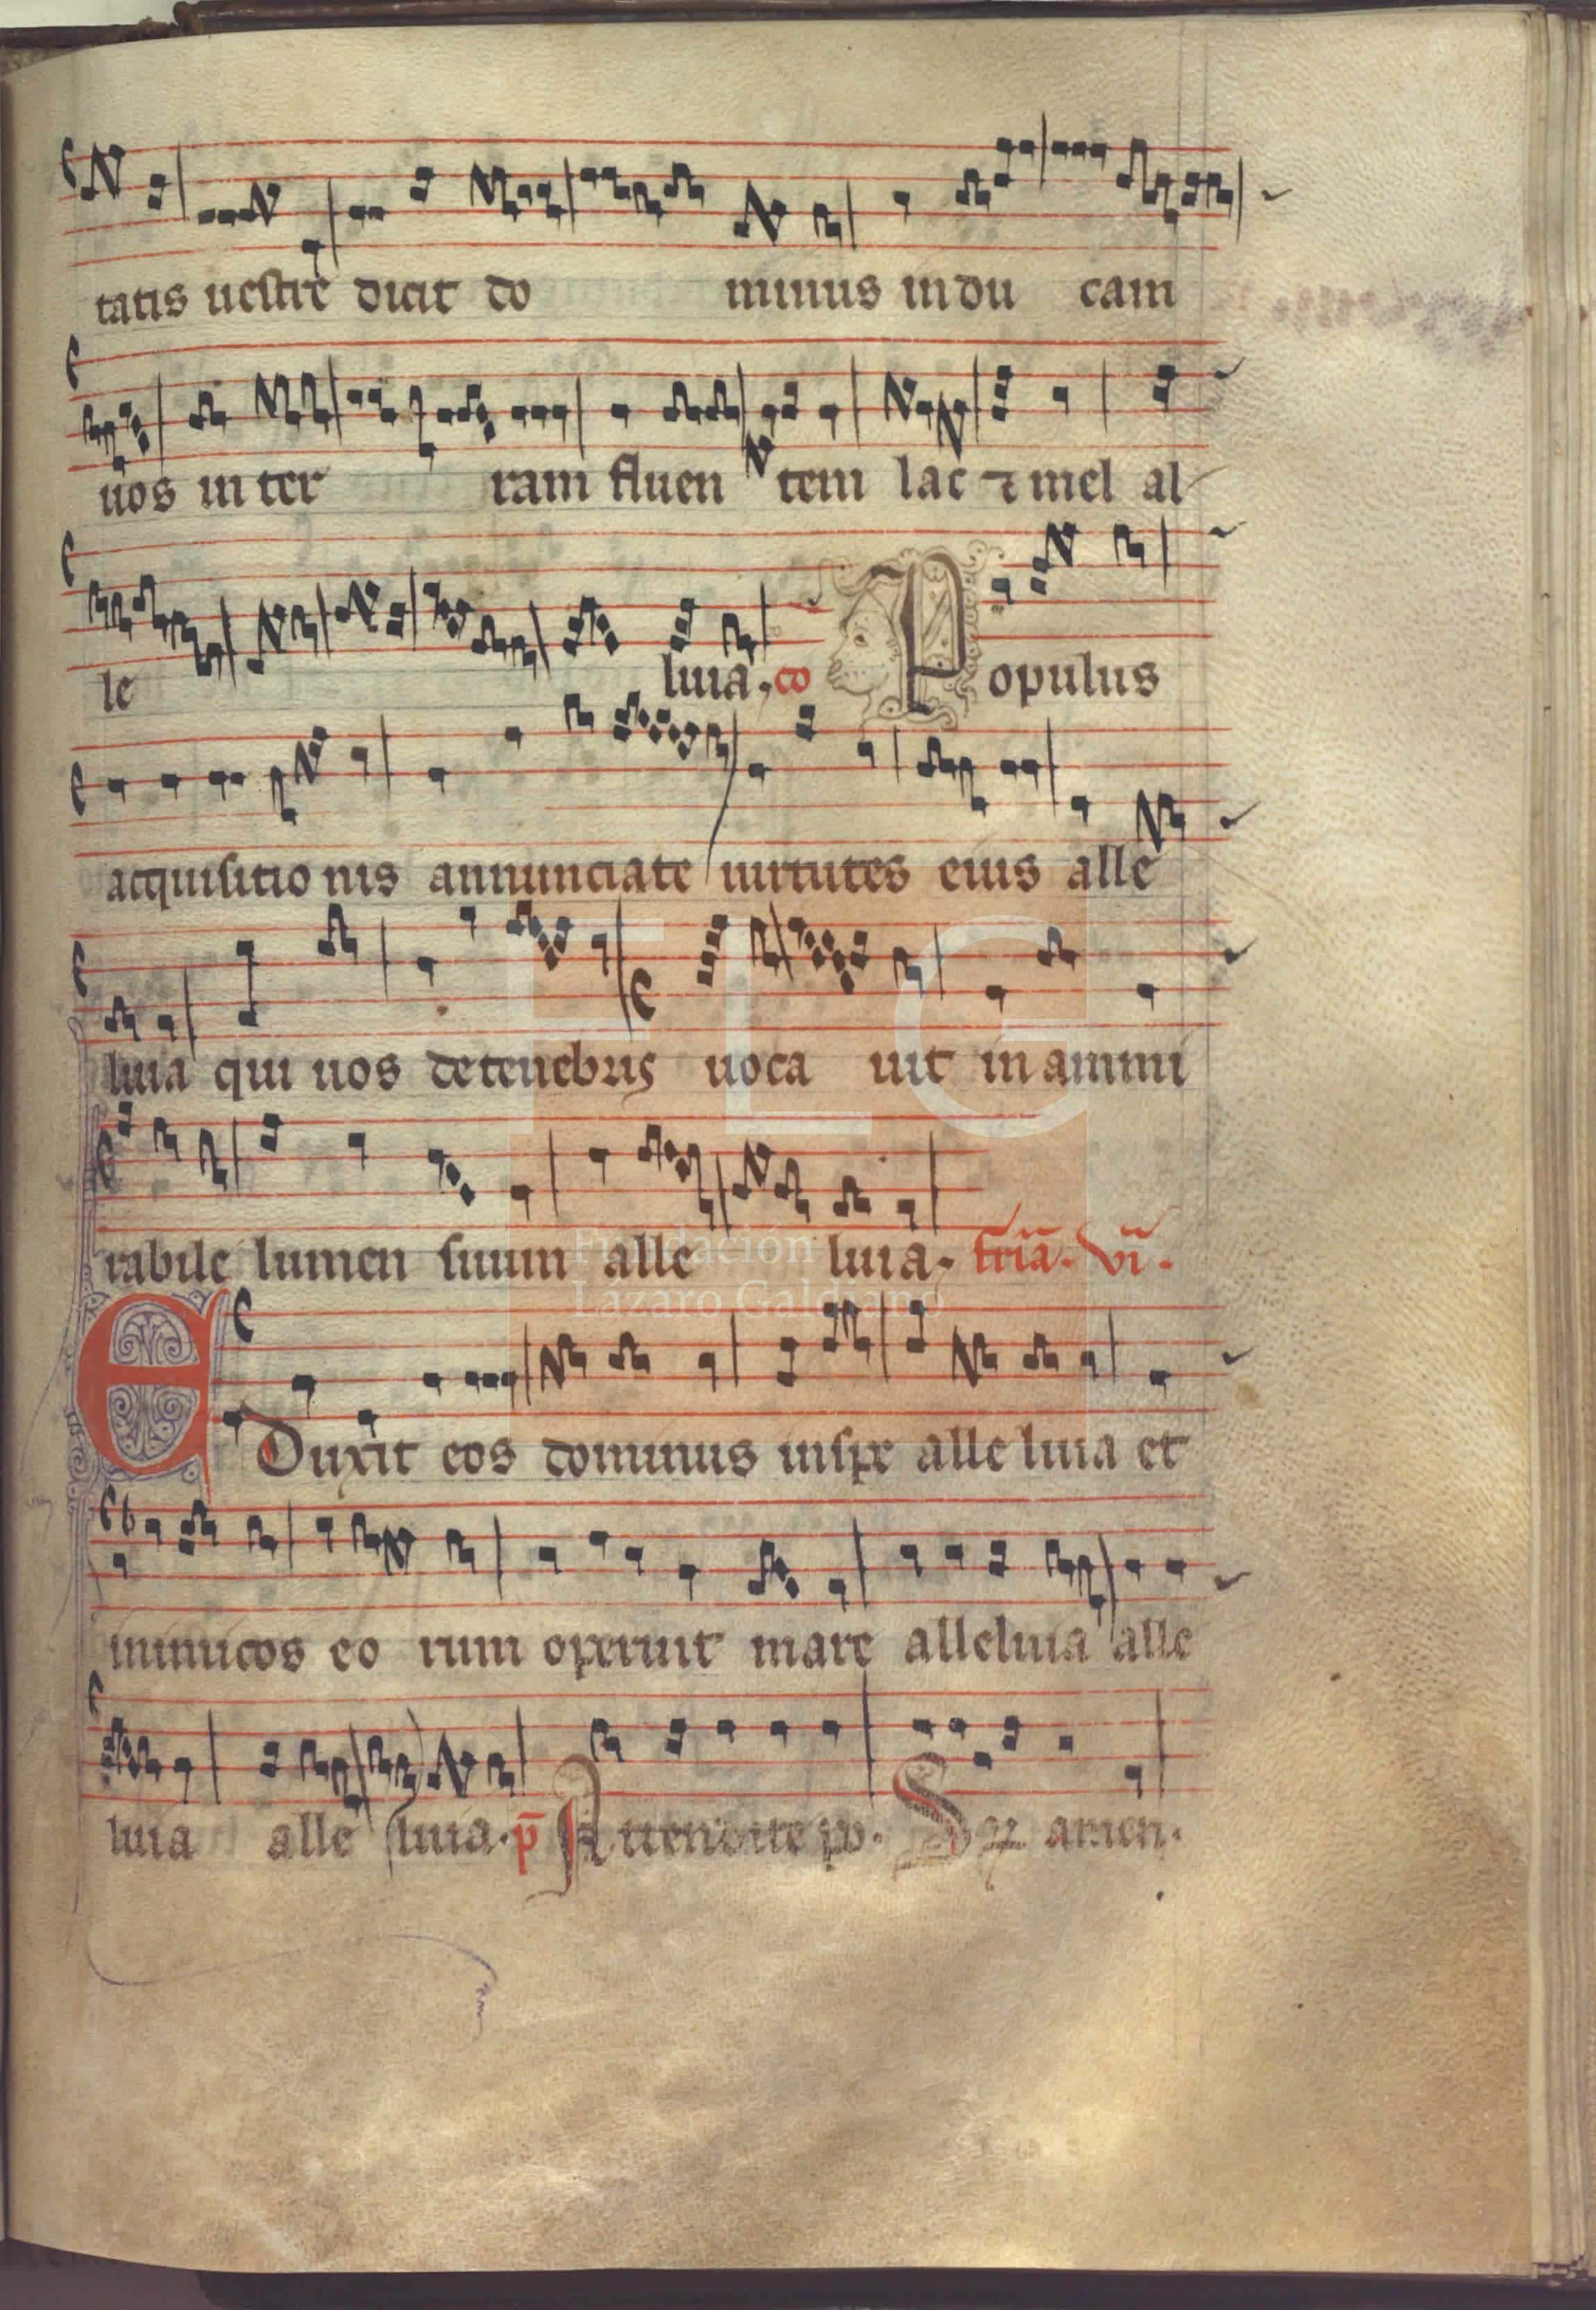 tatis uestre dicit do minus indu cam
uos in ter ram fluen tem lac ⁊ mel al
le luia. co Populus
acquisitio nis annunciate uirtutes eius alle
luia qui uos de tenebris uoca uit in ammi
rabile lumen suum alle luia. fr̄ia. vī.
Eduxit eos dominus in spe alle luia et
inimicos eo rum operuit mare alleluia alle
luia alle luia. p̄ Attendite po. S amen.
FLG
Fundación
Lázaro Galdiano